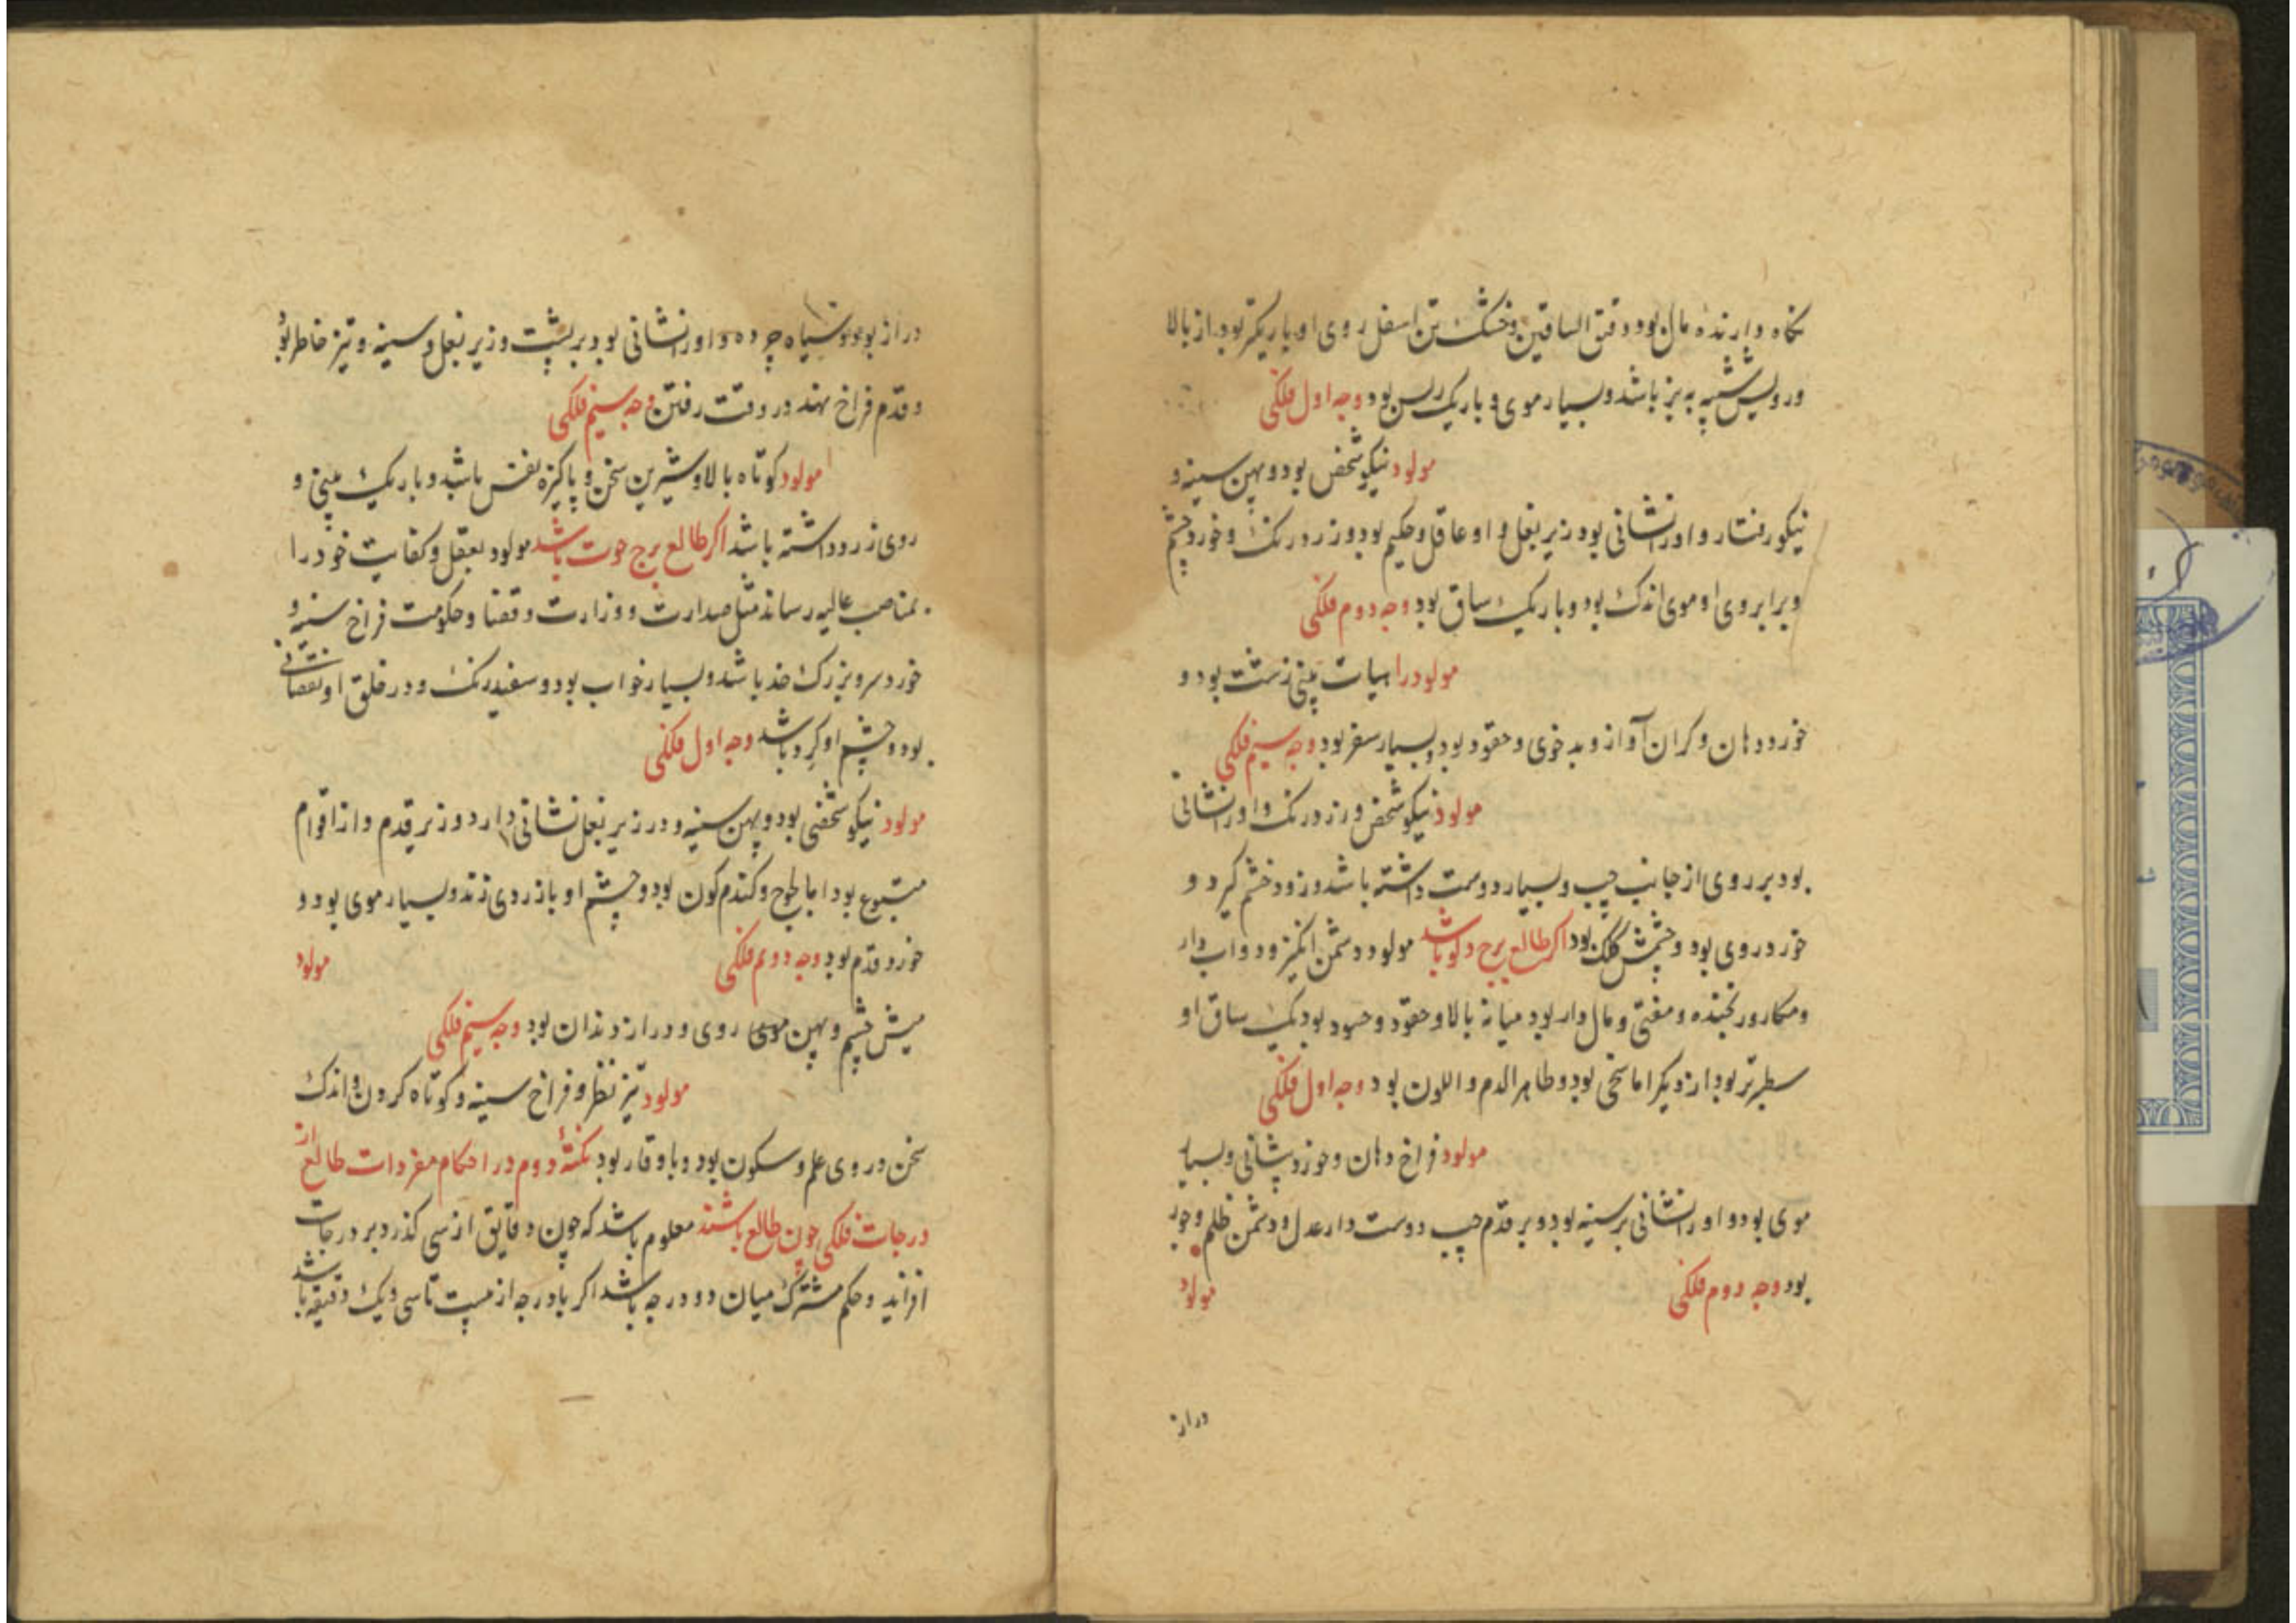 نکاه دارنده مال بود و دقیق الساقین و خشک تن اسفل روی او باریکتر بود از بالا
و رویش شبیه به بز باشد و بسیار موی و باریک ریس بود وجه اول فلکی
مولود نیکو شخص بود و پهن سینه و
نیکو رفتار و او را نشانی بود زیر بغل و او عاقل و حکیم بود و زرد رنک و خورد چشم
و برابروی او موی اندک بود و باریک ساق بود وجه دوم فلکی
مولود را هیات بینی زشت بود و
خورد دهان و کران آواز و بد خوی و حقود بود و بسیار سفر بود وجه سیم فلکی
مولود نیکو شخص و زرد رنک و او را نشانی
بود بر روی از جانب چپ و بسیار دوست داشته باشد و زود خشم کیرد و
خورد روی بود و چشمش بود اکر طالع برج دلو باشد مولود دشمن انکیز و دواب دار
و مکار و رنجنده و مغنی و مال دار بود میانه بالا و حقود و حسود بود یک ساق او
سطبرتر بود از دیکر اما سخی بود و طاهر الدم و اللون بود وجه اول فلکی
مولود فراخ دهان و خورد پشانی و بسیار
موی بود و او را نشانی بر سینه بود و بر قدم چپ دوست دار عدل و دشمن ظلم و جور
بود وجه دوم فلکی مولود
دراز
دراز بود و سیاه چرده و او را نشانی بود بر پشت و زیر بغل و سینه و تیز خاطر بود
و قدم فراخ نهد در وقت رفتن وجه سیم فلکی
مولود کوتاه بالا و شیرین سخن و پاکیزه نفس باشد و باریک بینی و
روی زرد داشته باشد اکر طالع برج حوت باشد مولود بعقل و کفایت خود را
بمناصب عالیه رساند مثل صدارت و وزارت و قضا و حکومت فراخ سینه و
خورد سر و بزرک خد باشد و بسیار خواب بود و سفید رنک و در خلق او نقصانی
بود و چشم او کرد باشد وجه اول فلکی
مولود نیکو شخصی بود و پهن سینه و در زیر بغل نشانی دارد و زیر قدم و از اقوام
متبوع بود اما لجوج و کندم کون بود و چشم او باز روی زند و بسیار موی بود و
خورد قدم بود وجه دویم فلکی مولود
میش چشم و پهن موی روی و دراز دندان بود وجه سیم فلکی
مولود تیز نظر و فراخ سینه و کوتاه کردن و اندک
سخن در وی علم و سکون بود و با وقار بود نکتهٔ دوم در احکام مفردات طالع از
درجات فلکی چون طالع باشند معلوم باشد که چون دقایق از سی کذرد بر درجات
افزاند و حکم مشترک میان دو درجه باشد اکر با درجه از بیست تا سی و یک دقیقه باشد